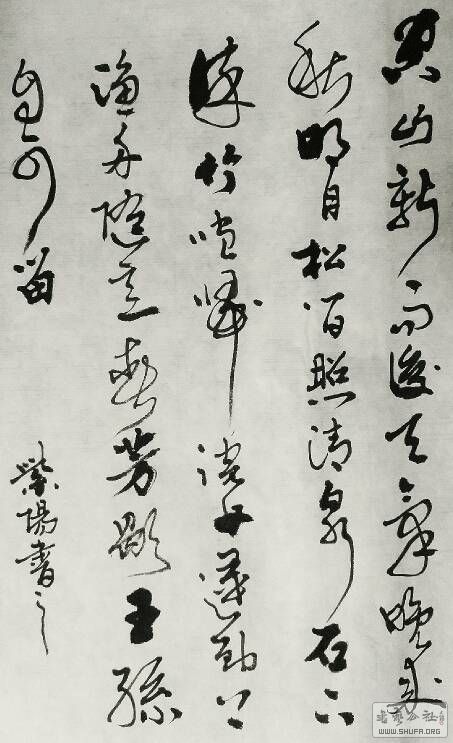 空山新雨後天氣晚来
秋明月松間照清泉石上
流竹喧歸浣女蓮動下
漁舟隨意春芳歇王孫
自可留
陽書之
書艺公社
WWW.SHUFA.ORG